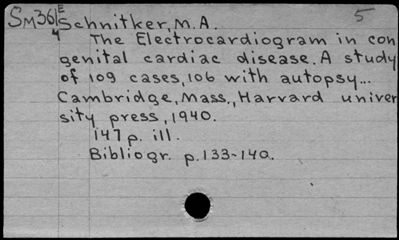 SM361E Schnitker, M.A. 5
4
The Electrocardiogram in con
genital cardiac disease. A study
of 109 cases, 106 with autopsy...
Cambridge, Mass., Harvard univer
sity press, 1940.
147 p. ill.
Bibliogr. p. 133-140.